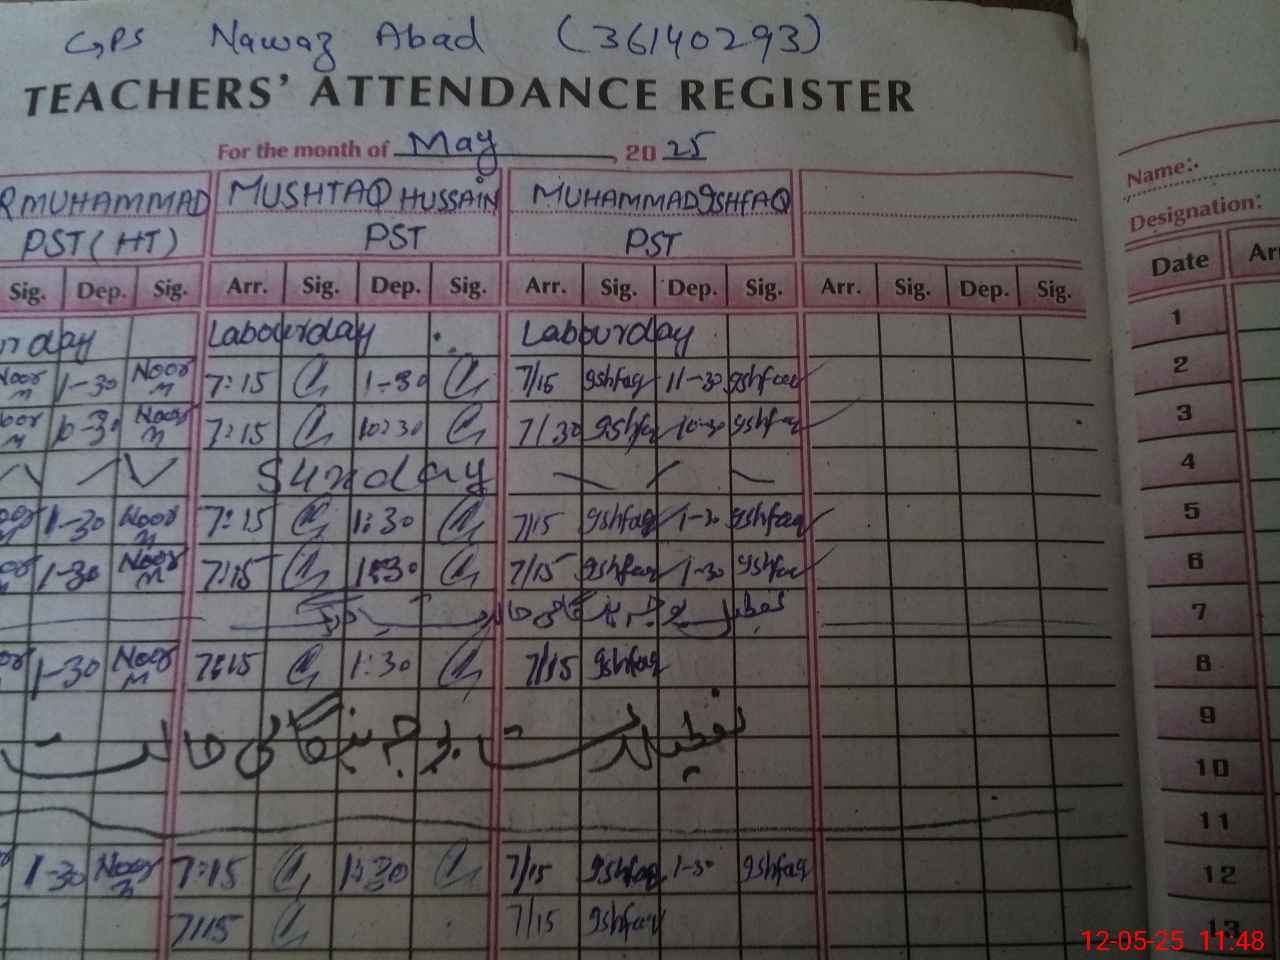 GPS Nawaz Abad (36140293)
TEACHERS' ATTENDANCE REGISTER
For the month of May, 2025
Name:-
R MUHAMMAD MUSHTAQ HUSSAIN MUHAMMAD ISHFAQ
Designation:
PST (HT) PST PST
Sig. Dep. Sig. Arr. Sig. Dep. Sig. Arr. Sig. Dep. Sig. Arr. Sig. Dep. Sig. Date Arr
rday Labourday Labourday 1
Noor M 1-30 Noor M 7:15 1-30 7/15 Ishfaq 11-30 Ishfaq 2
oor M 10-30 Noor M 7:15 10:30 7/30 Ishfaq 10-30 Ishfaq 3
Sunday 4
oor 1-30 Noor M 7:15 1:30 7/15 Ishfaq 1-30 Ishfaq 5
oor 1-30 Noor M 7:15 1:30 7/15 Ishfaq 1-30 Ishfaq 6
تعطیل بوجہ جنگی حالات 7
or 1-30 Noor M 7:15 1:30 7/15 Ishfaq 8
9
تعطیلات بوجہ جنگی حالات 10
11
1-30 Noor M 7:15 1:30 7/15 Ishfaq 1-30 Ishfaq 12
7/15 7/15 Ishfaq 13
12-05-25 11:48